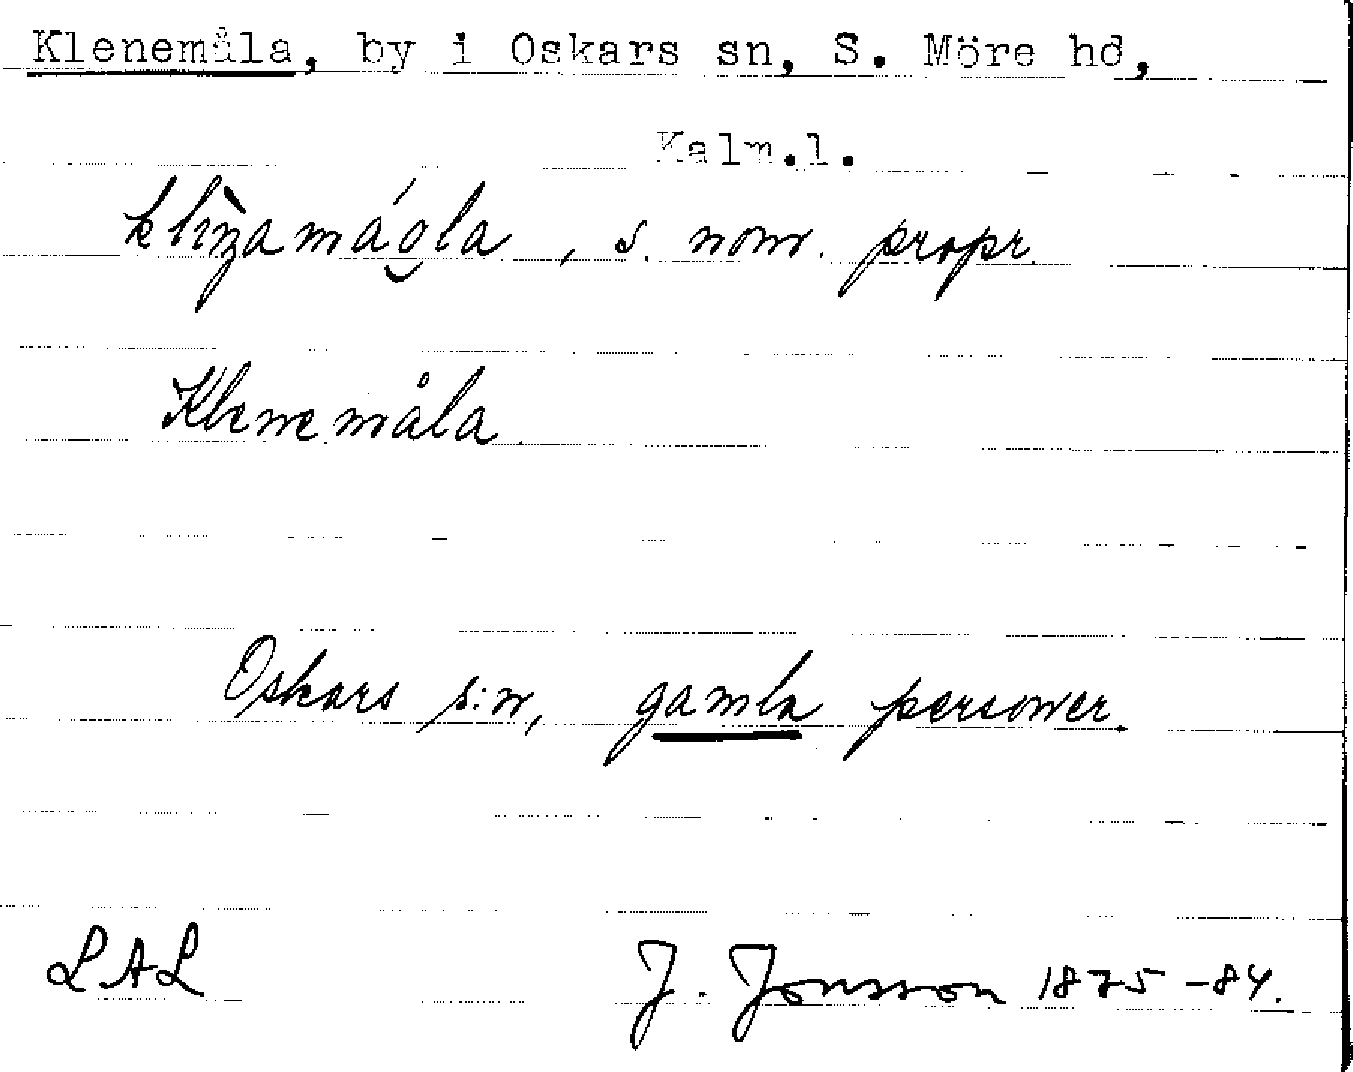 Klenemåla, by i Oskars sn, S. Möre hd,
Kalm.l.
, s. nom. propr.
Klenemåla
Oskars s:n, gamla personer.
LAL J. Jonsson 1875-84.